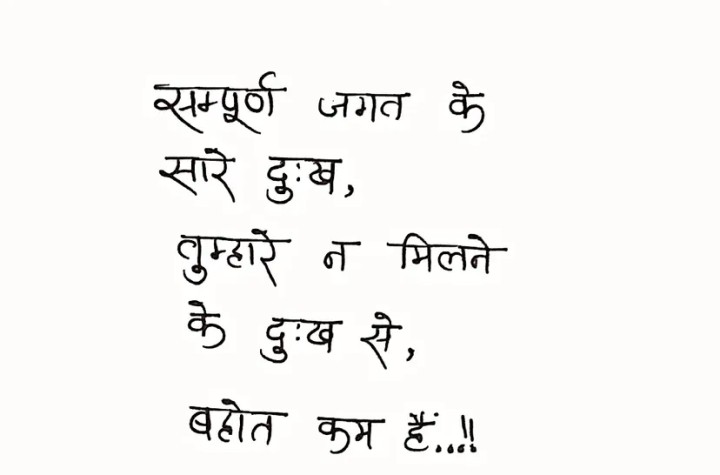 सम्पूर्ण जगत के
सारे दुःख,
तुम्हारे न मिलने
के दुःख से,
बहोत कम हैं..!!